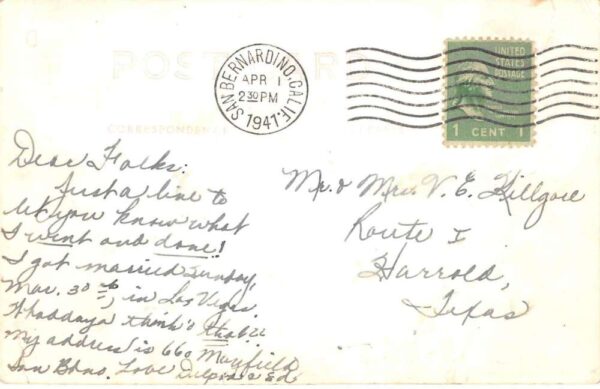 POST CAR
CORRESPONDENCE
SAN BERNARDINO, CALIF.
APR 1
2 30 PM
1941
UNITED
STATES
POSTAGE
1 CENT 1
Dear Folks:
Just a line to
let you know what
I went and done!
I got married Sunday,
Mar. 30th, in Las Vegas.
Whaddaya think's that??
My address is 660 Mayfield
San Bdno. Love & Ed
Mr. & Mrs. V. E. Killgore
Route I
Harrold,
Texas